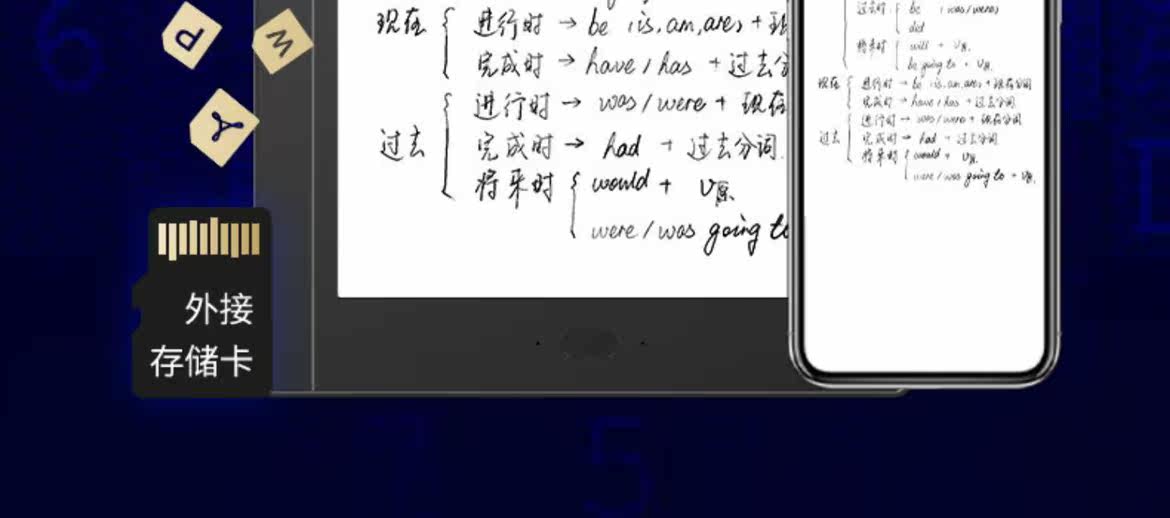 P
W
外接
存储卡
现在
进行时 → be (is,am,are) + 现
完成时 → have/has + 过去分
过去
进行时 → was/were + 现在
完成时 → had + 过去分词
将来时
would + V原
were/was going to
过去时
be (was/were)
did
将来时
will + V原
be going to + V原
现在
进行时 → be is,am,are + 现在分词
完成时 → have/has + 过去分词
过去
进行时 → was/were + 现在分词
完成时 → had + 过去分词
将来时
would + V原
were/was going to + V原